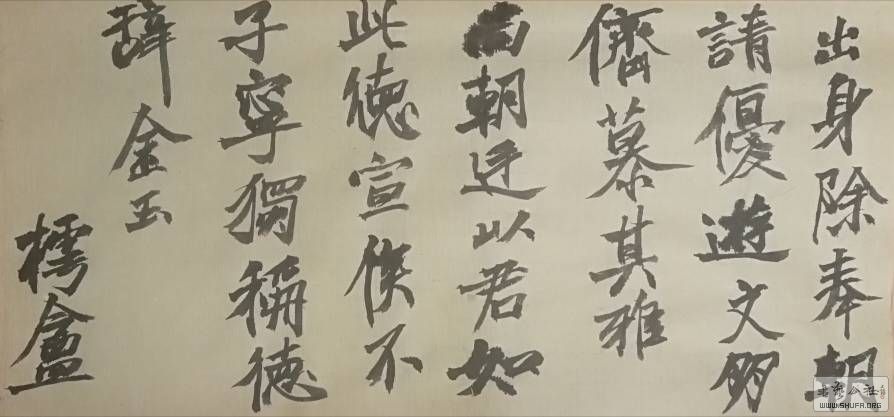 出身除奉朝
請優遊文朋
儕慕其雅
尚朝廷以君如
此德宣俟不
子寧獨稱德
辞金玉
樗盦
WWW.SHUFA.ORG